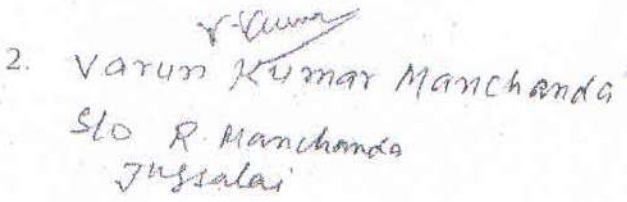 V. Kumar
2. Varun Kumar Manchanda
S/o R. Manchanda
Jugsalai